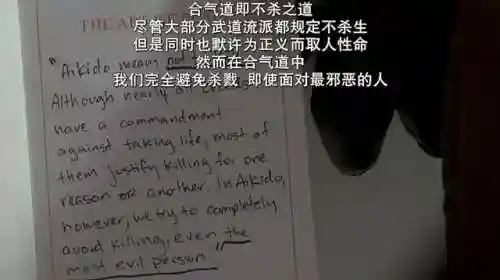 合气道即不杀之道
尽管大部分武道流派都规定不杀生
但是同时也默许为正义而取人性命
然而在合气道中
我们完全避免杀戮 即使面对最邪恶的人
THE
"Aikido mean not
Although nearly all
have a commandment
against taking life, most of
them justify killing for one
reason or another. In Aikido,
however, we try to completely
avoid killing, even the
most evil person.